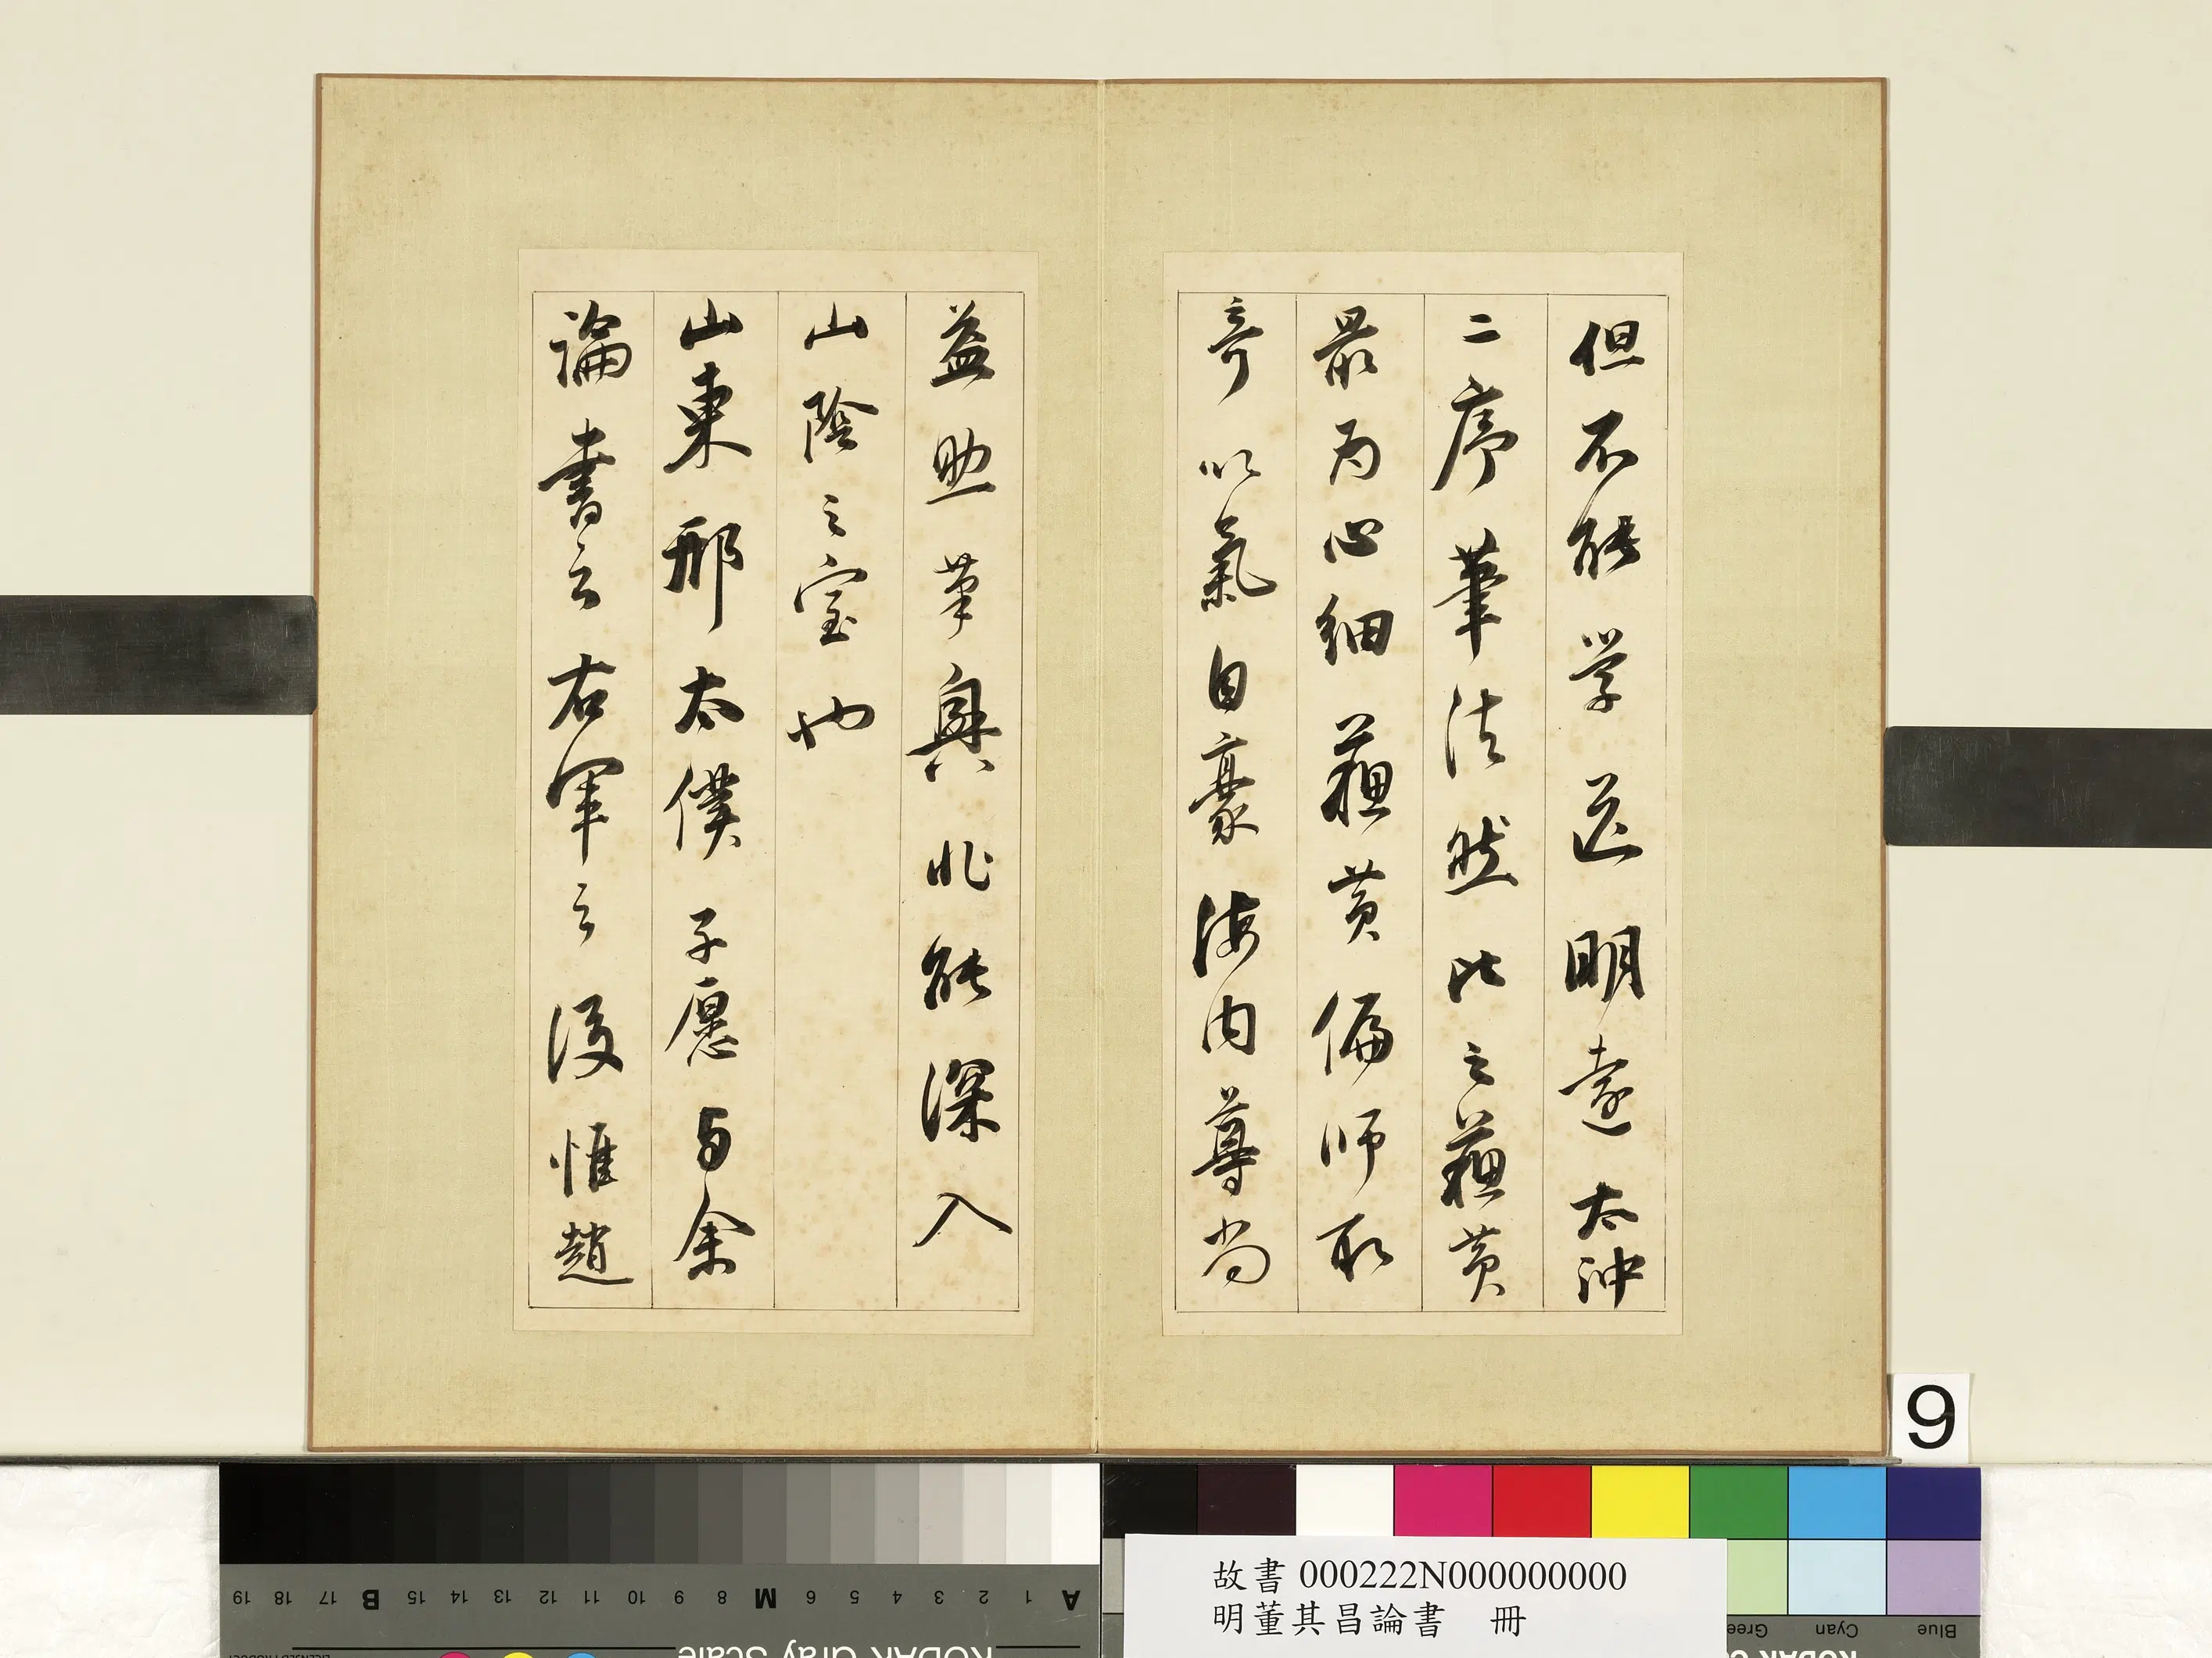 但不能学明遠太沖
二序筆法然比之蘓黄
最為心細蘓黄偏師取
奇以氣自豪海内尊尚
益筆興非能深入
山陰之室也
山東邢太僕子愿与余
論書云右軍之後惟趙
9
故書 000222N000000000
明董其昌論書 冊
A 1 2 3 4 5 6 M 8 9 10 11 12 13 14 15 B 17 18 19
KODAK Gray Scale
Blue Cyan Gree